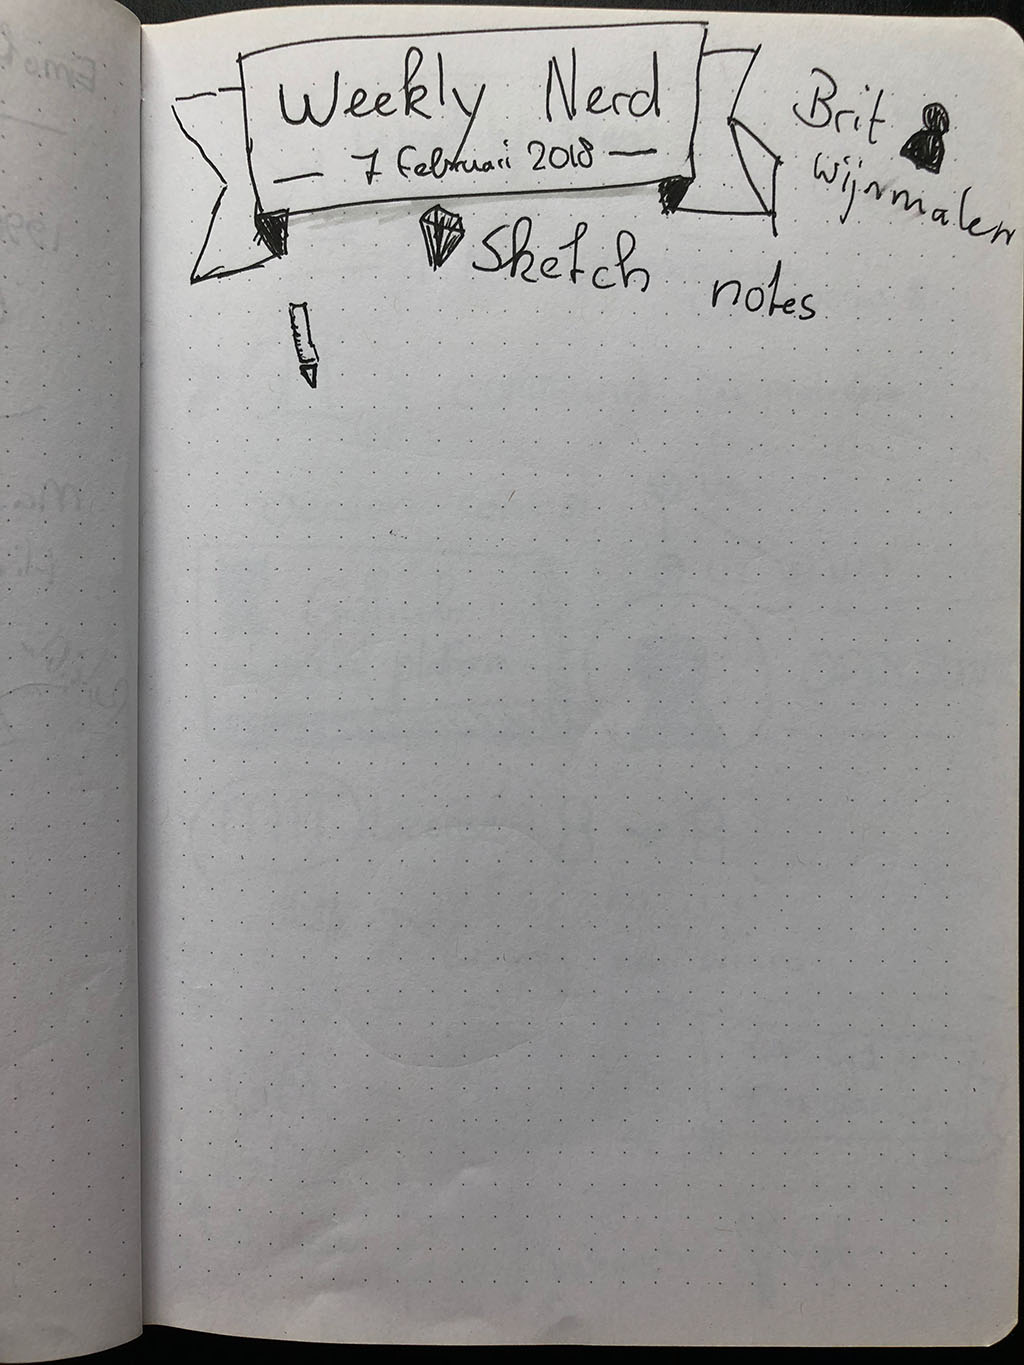 Weekly Nerd
7 februari 2018
Brit
Wijnmalen
Sketch notes